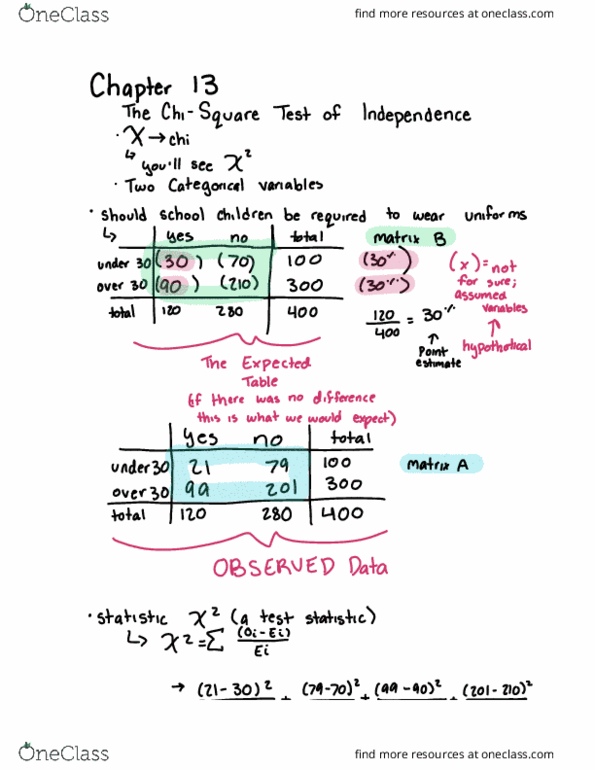 OneClass
find more resources at oneclass.com
Chapter 13
The Chi-Square Test of Independence
· X → chi
↳ you'll see X²
· Two Categorical variables
· should school children be required to wear uniforms
↳ yes no total matrix B
under 30 (30) (70) 100 (30%) (x) = not
over 30 (90) (210) 300 (30%) for sure;
assumed
variables
total 120 280 400 120/400 = 30%
↑ ↑
Point estimate hypothetical
The Expected
Table
(if there was no difference
this is what we would expect)
yes no total
under 30 21 79 100 matrix A
over 30 99 201 300
total 120 280 400
OBSERVED Data
· statistic X² (a test statistic)
↳ X² = Σ (Oi-Ei)/Ei
→ (21-30)² + (79-70)² + (99-90)² + (201-210)²
OneClass
find more resources at oneclass.com